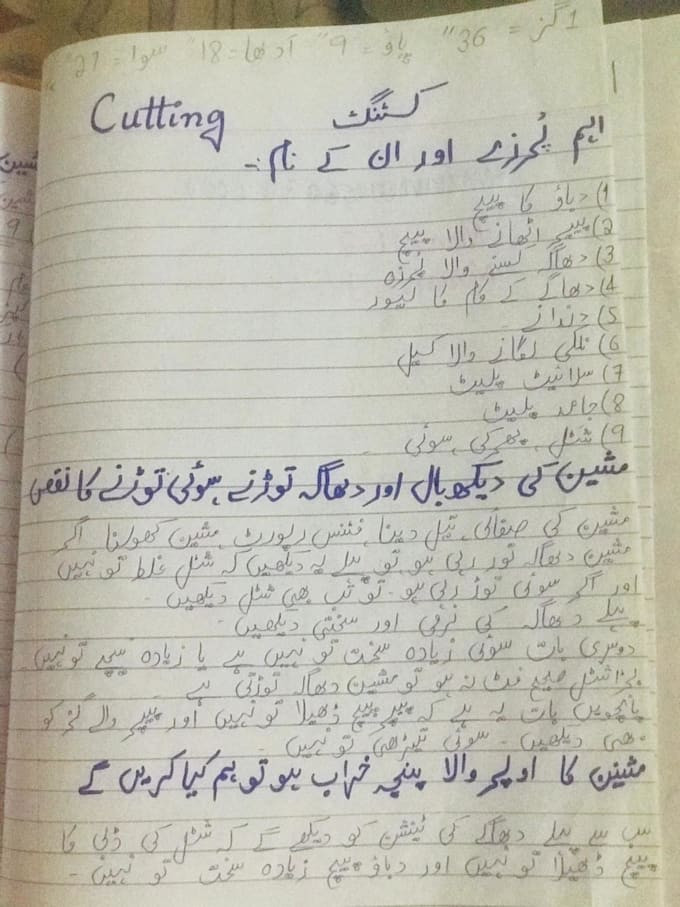 1 گز = 36" پاؤ = 9" آدھا = 18" سوا = 27"
1
Cutting کٹنگ
اہم پُرزے اور ان کے نام :-
1) دباؤ کا پیچ
2) پیپر اٹھانے والا پیچ
3) دھاگہ کسنے والا پُرزہ
4) دھاگے کے کام کا لیور
5) دندانے
6) نلکی لگانے والا کیل
7) سلائیٹ پلیٹ
8) جامد پلیٹ
9) شٹل، پھرکی، سوئی
مشین کی دیکھ بال اور دھاگہ توڑنے، سوئی توڑنے کا نقص
مشین کی صفائی، تیل دینا، فٹنس رپورٹ، مشین کھولنا اگر
مشین دھاگہ توڑ رہی ہو تو پہلے یہ دیکھیں کہ شٹل غلط تو نہیں
اور اگر سوئی توڑ رہی ہو۔ تو تب بھی شٹل دیکھیں۔
پہلے دھاگہ کی نرمی اور سختی دیکھیں۔
دوسری بات سوئی زیادہ سخت تو نہیں ہے یا زیادہ نیچے تو نہیں۔
شٹل صحیح فٹ نہ ہو تو مشین دھاگہ توڑتی ہے۔
پانچویں بات یہ ہے کہ پیپر پیچ ڈھیلا تو نہیں اور پیپر والے گز کو
بھی دیکھیں۔ سوئی ٹیڑھی تو نہیں۔
مشین کا اوپر والا پنچہ خراب ہو تو ہم کیا کریں گے
سب سے پہلے دھاگے کی ٹینشن کو دیکھے گے کہ شٹل کی ڈبی کا
پیچ ڈھیلا تو نہیں اور دباؤ پیچ زیادہ سخت تو نہیں۔